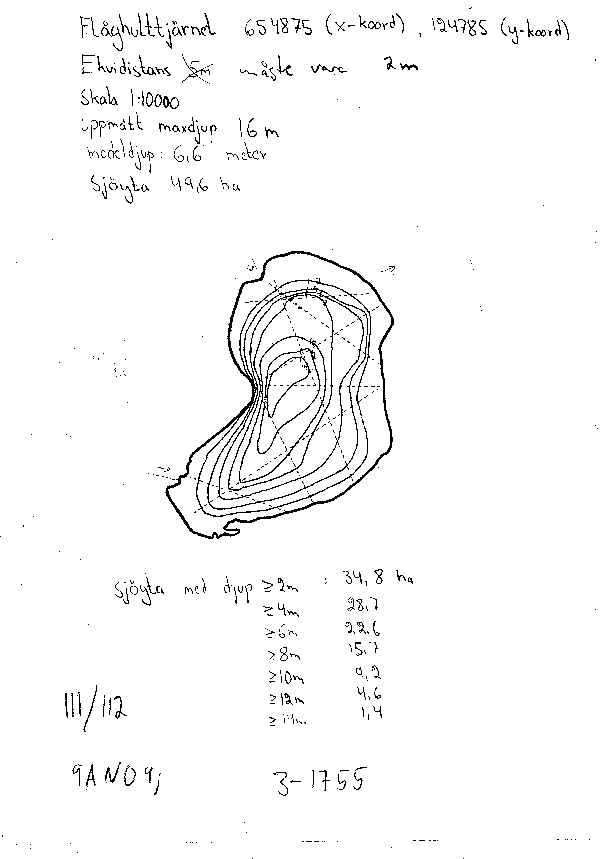 Flåghulttjärnet 654875 (x-koord), 124785 (y-koord)
Ekvidistans 5m måste vara 2m
Skala 1:10000
uppmätt maxdjup 16 m
medeldjup: 6,6 meter
Sjöyta 49,6 ha
Sjöyta med djup ≥2m : 34,8 ha
≥4m 28,7
≥6m 22,6
≥8m 15,7
≥10m 9,2
≥12m 4,6
≥14m 1,4
111/112
9AN09j
3-1755